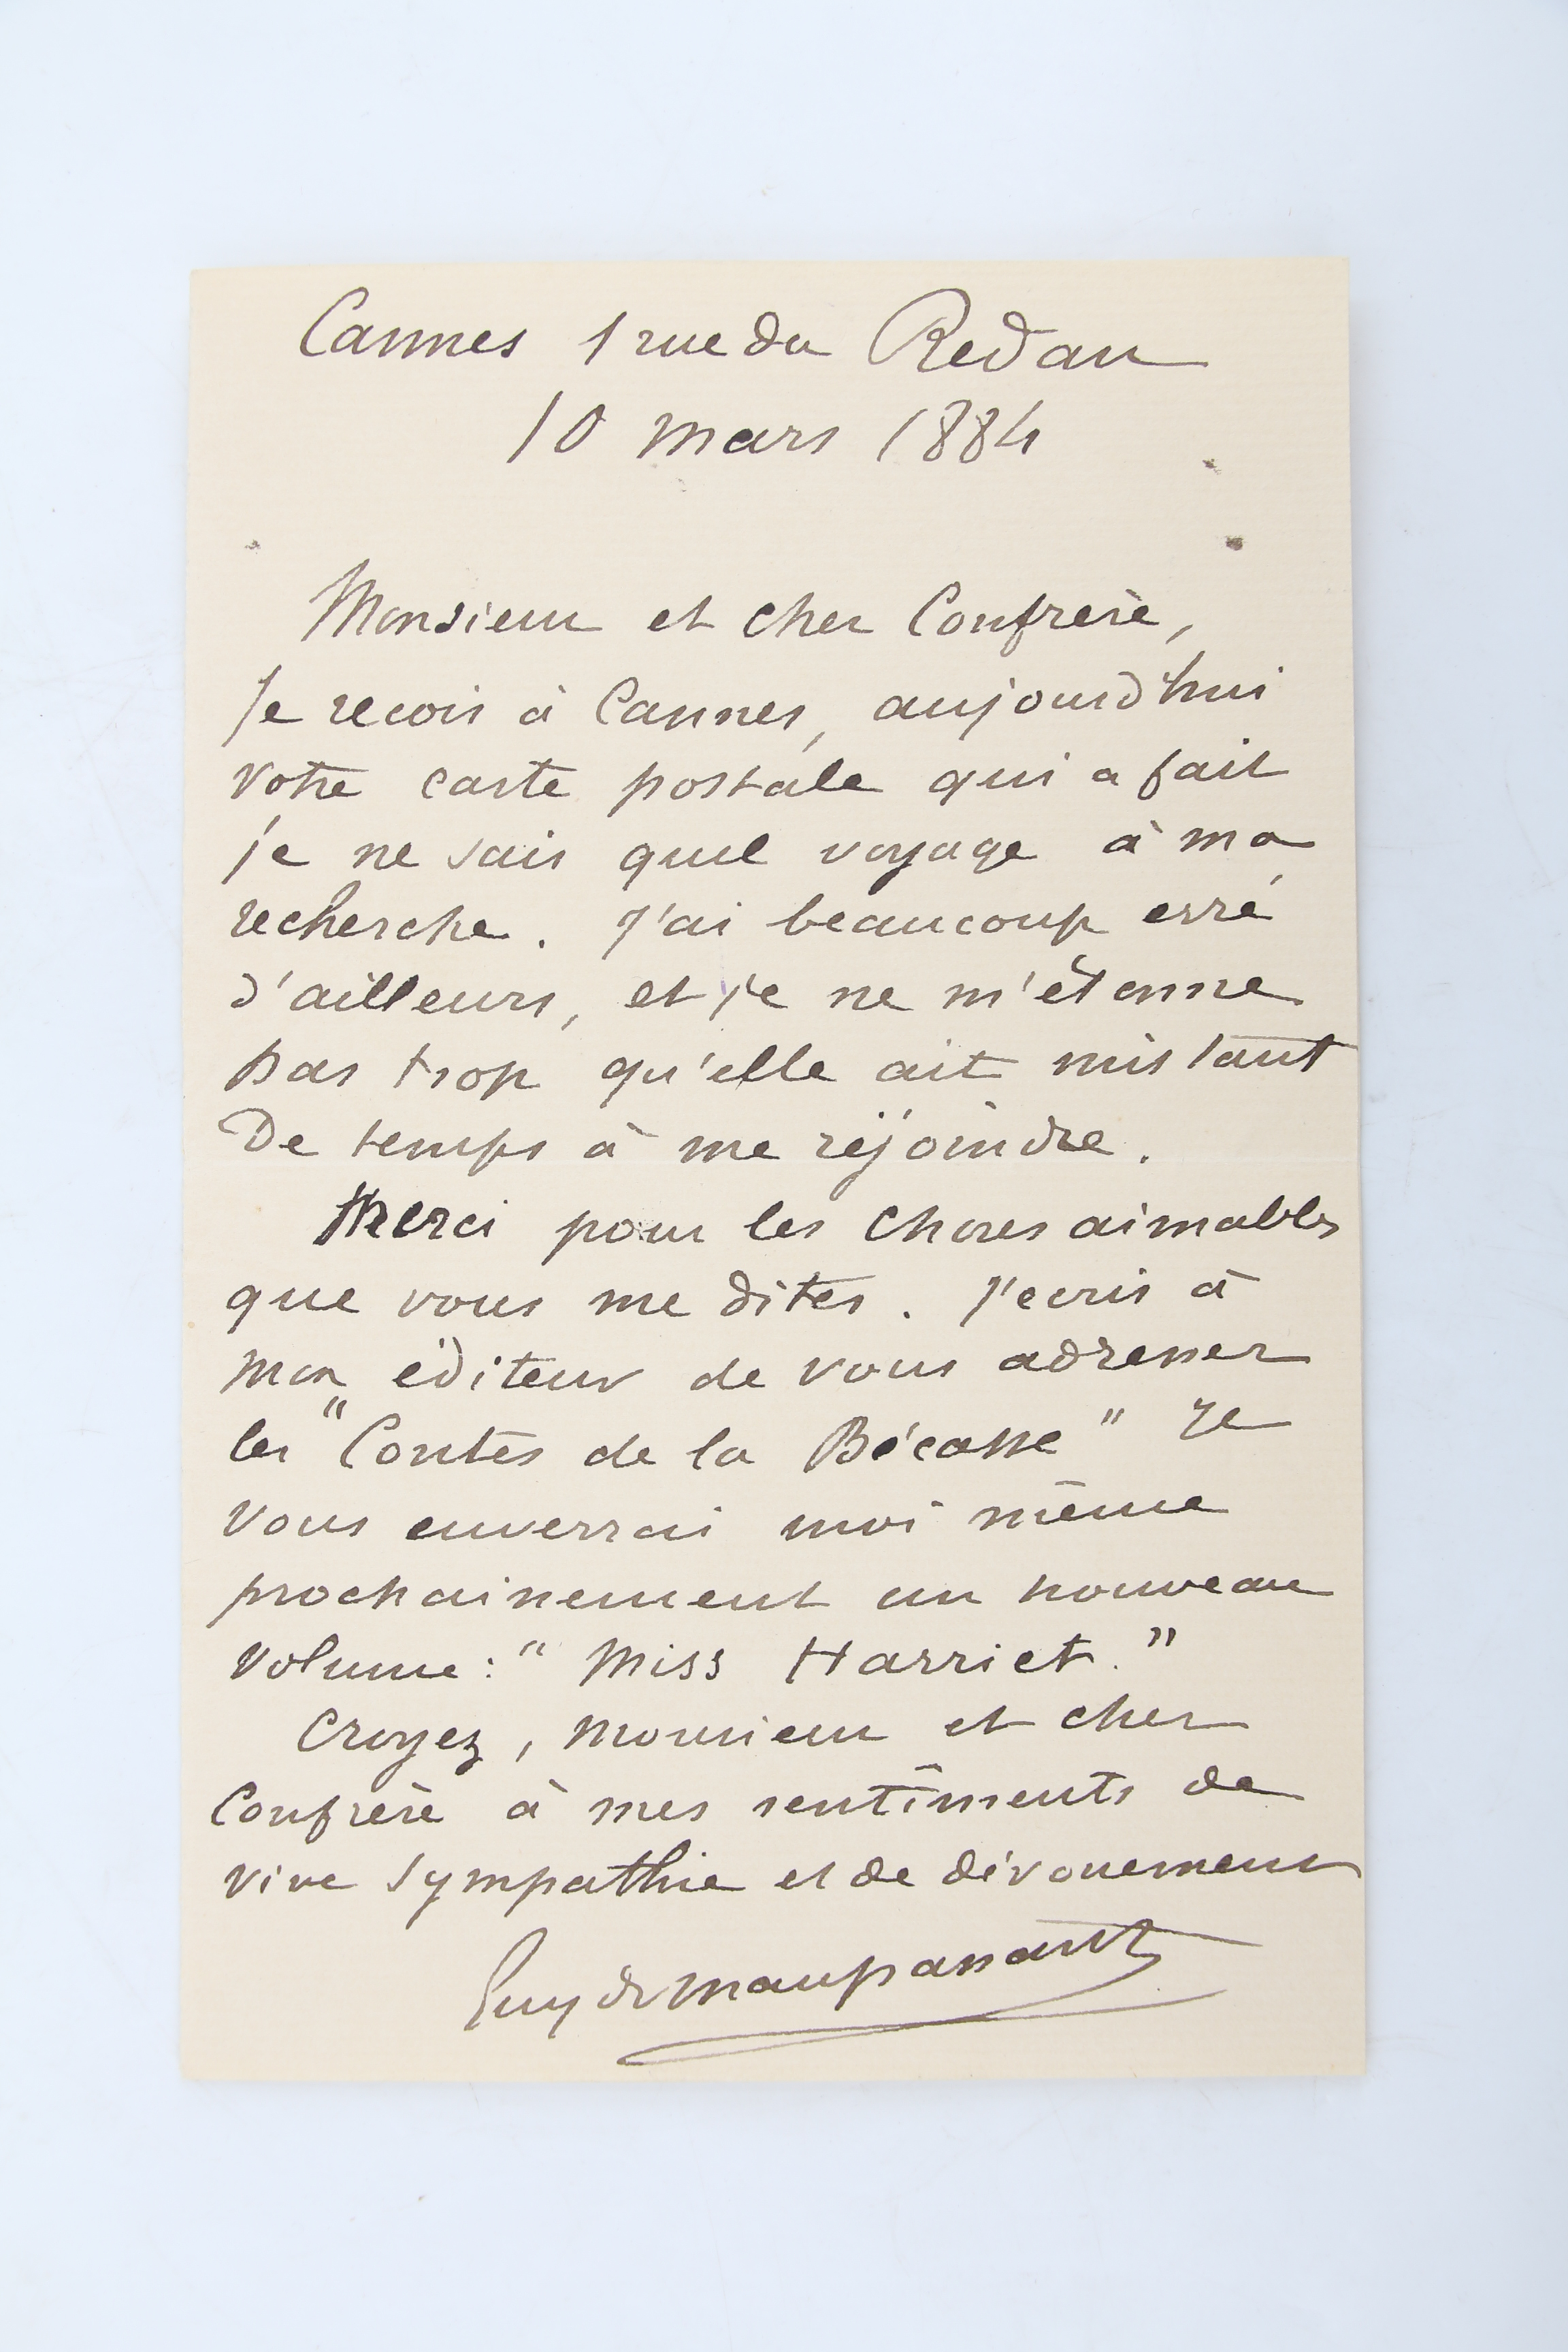 Cannes 1 rue du Redan
10 mars 1884
Monsieur et cher Confrère,
Je recois à Cannes, aujourd'hui
votre carte postale qui a fait
je ne sais quel voyage à ma
recherche. J'ai beaucoup erré
d'ailleurs, et je ne m'étonne
pas trop qu'elle ait mis tant
De temps à me rejoindre.
Merci pour les choses aimables
que vous me dites. J'ecris à
mon éditeur de vous adresser
les "Contes de la Bécasse" Je
vous enverrai moi même
prochainement un nouveau
volume : "Miss Harriet."
Croyez, Monsieur et cher
Confrère à mes sentiments de
vive sympathie et de dévouement
Guy de Maupassant